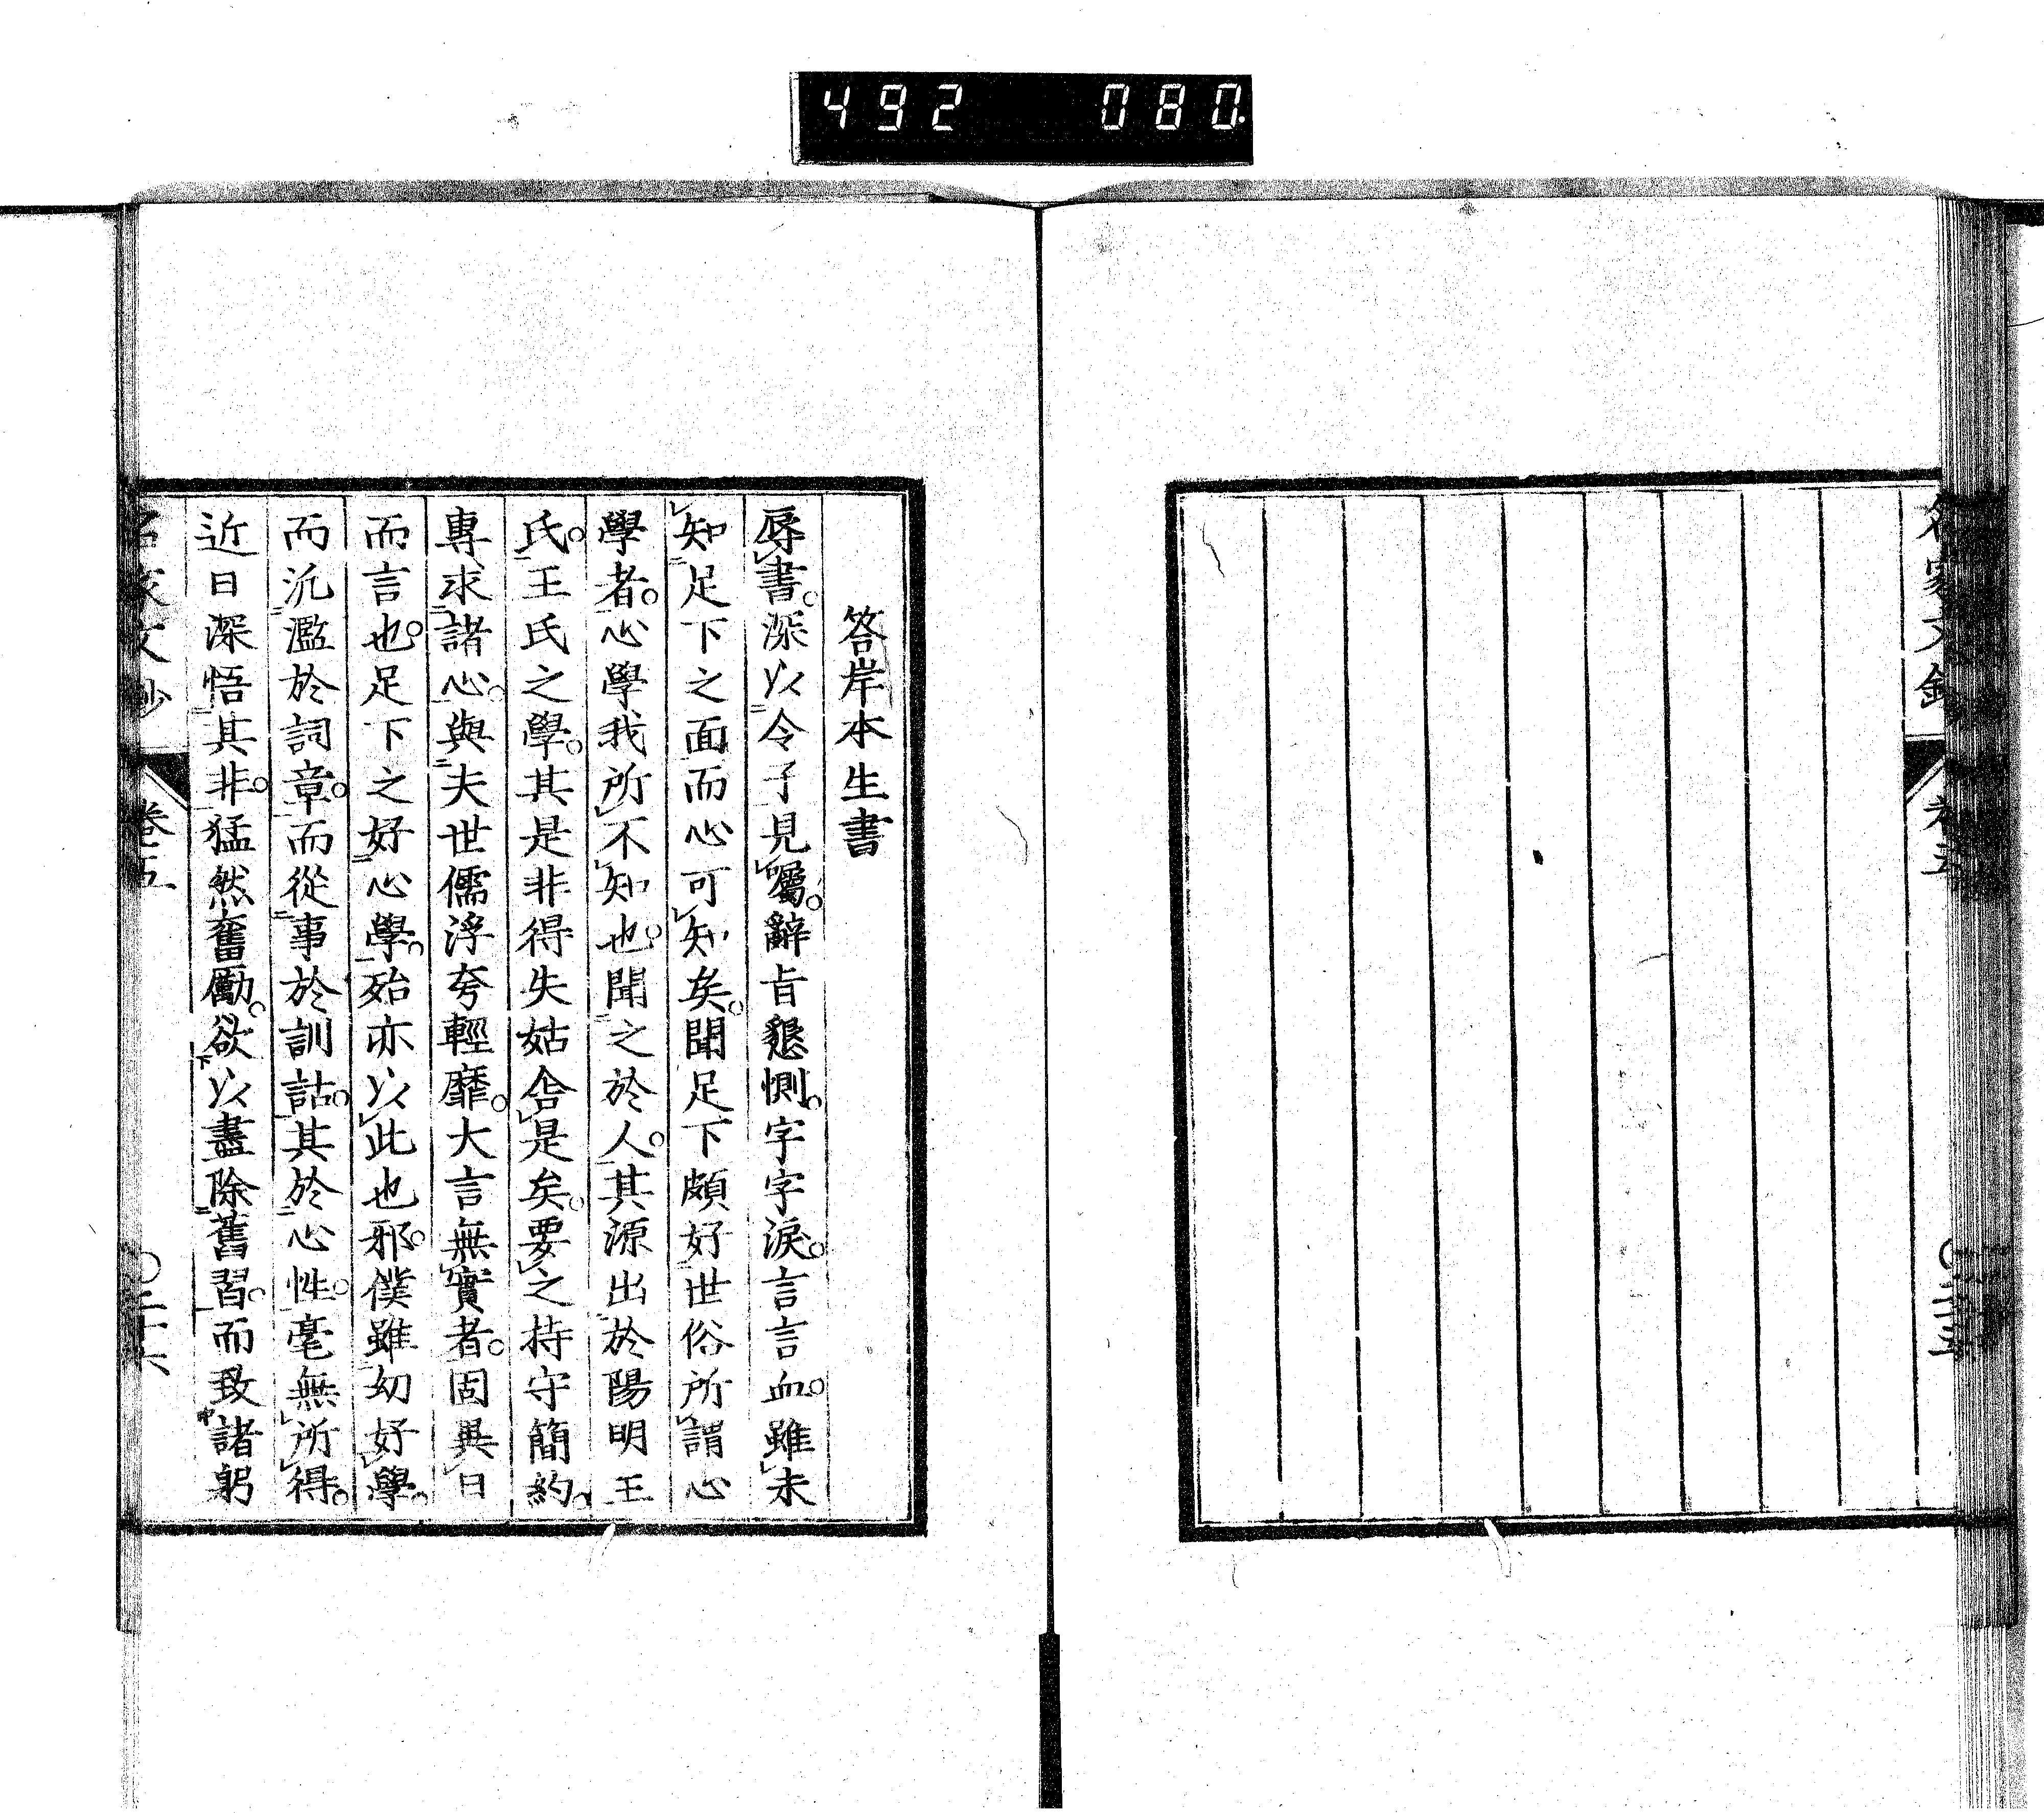 492 080
名家文鈔
卷五
答岸本生書
辱書。深以令子見囑。辭旨懇惻。字字淚。言言血。雖未
知足下之面而心可知矣。聞足下頗好世俗所謂心
學者。心學我所不知也。聞之於人。其源出於陽明王
氏。王氏之學。其是非得失姑舍是矣。要之持守簡約。
專求諸心。與夫世儒浮夸輕靡。大言無實者。固異日
而言也。足下之好心學。殆亦以此也邪。僕雖幼好學。
而氿濫於詞章。而從事於訓詁。其於心性。毫無所得。
近日深悟其非。猛然奮勵。欲以盡除舊習。而致諸躬
名家文鈔
卷五
〇二十六